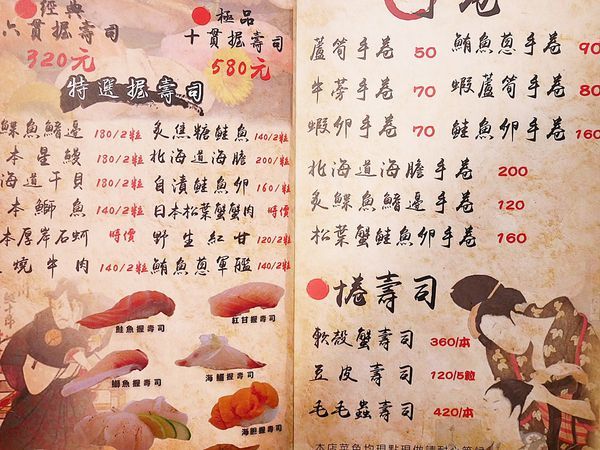 經典
六貫握壽司
320元
極品
十貫握壽司
580元
特選握壽司
鰈魚鰭邊 180/2粒
本星鰻 180/2粒
海道干貝 180/2粒
本鰤魚 140/2粒
本厚岸石蚵 時價
燒牛肉 140/2粒
炙焦糖鮭魚 140/2粒
北海道海膽 200/粒
自漬鮭魚卵 160/粒
日本松葉蟹蟹肉 時價
野生紅甘 120/2粒
鮪魚蔥軍艦 140/2粒
鮭魚握壽司
紅甘握壽司
鰤魚握壽司
海鱺握壽司
海膽握壽司
蘆筍手卷 50
牛蒡手卷 70
蝦卵手卷 70
鮪魚蔥手卷 90
蝦蘆筍手卷 80
鮭魚卵手卷 160
北海道海膽手卷 200
炙鰈魚鰭邊手卷 120
松葉蟹鮭魚卵手卷 160
捲壽司
軟殼蟹壽司 360/本
豆皮壽司 120/5粒
毛毛蟲壽司 420/本